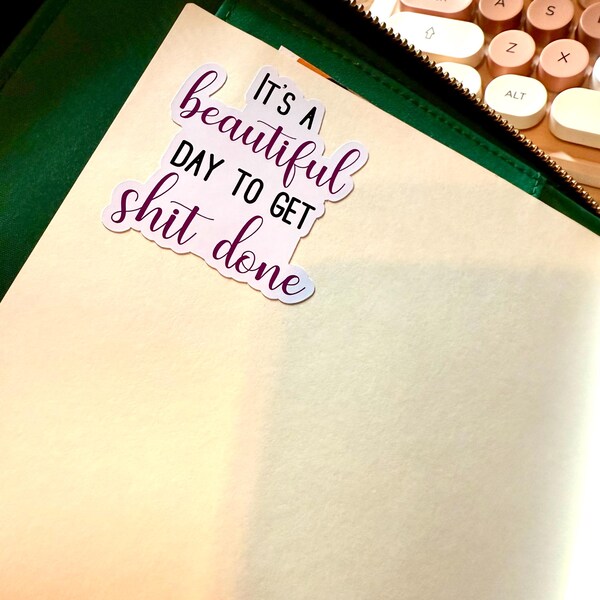 IT'S A
beautiful
DAY TO GET
shit done
A
S
Z
X
ALT